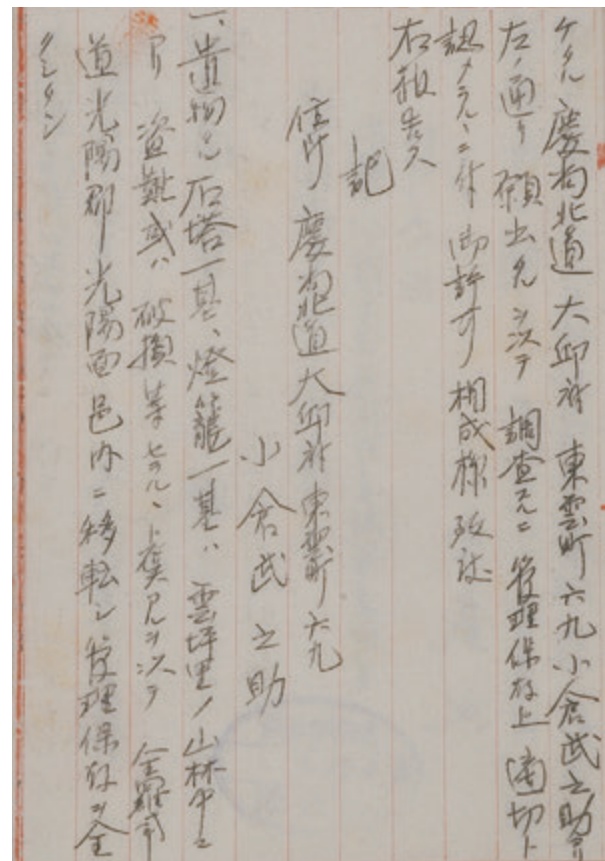 ケタル慶尚北道大邱府東雲町六九小倉武之助ヨリ
左ノ通リ願出タルヲ以テ調査スルニ管理保存上適切ト
認メラルヽニ付御許可相成様致度
右報告ス
記
住所 慶尚北道大邱府東雲町六九
小倉武之助
一、遺物ル石塔一基、燈籠一基ハ雲坪里ノ山林中ニ
アリ盗難或ハ破損等セラルヽト虞アルヲ以テ全羅南
道光陽郡光陽面邑内ニ移転シ管理保存ヲ全